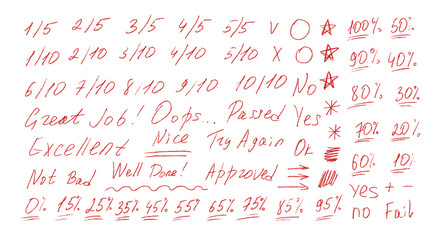 1/5 2/5 3/5 4/5 5/5 V 100% 50%
1/10 2/10 3/10 4/10 5/10 X 90% 40%
6/10 7/10 8/10 9/10 10/10 No 80% 30%
Great Job! Oops... Passed Yes 70% 20%
Excellent Nice Try Again Ok 60% 10%
Not Bad Well Done! Approved yes + -
0% 15% 25% 35% 45% 55% 65% 75% 85% 95% no Fail